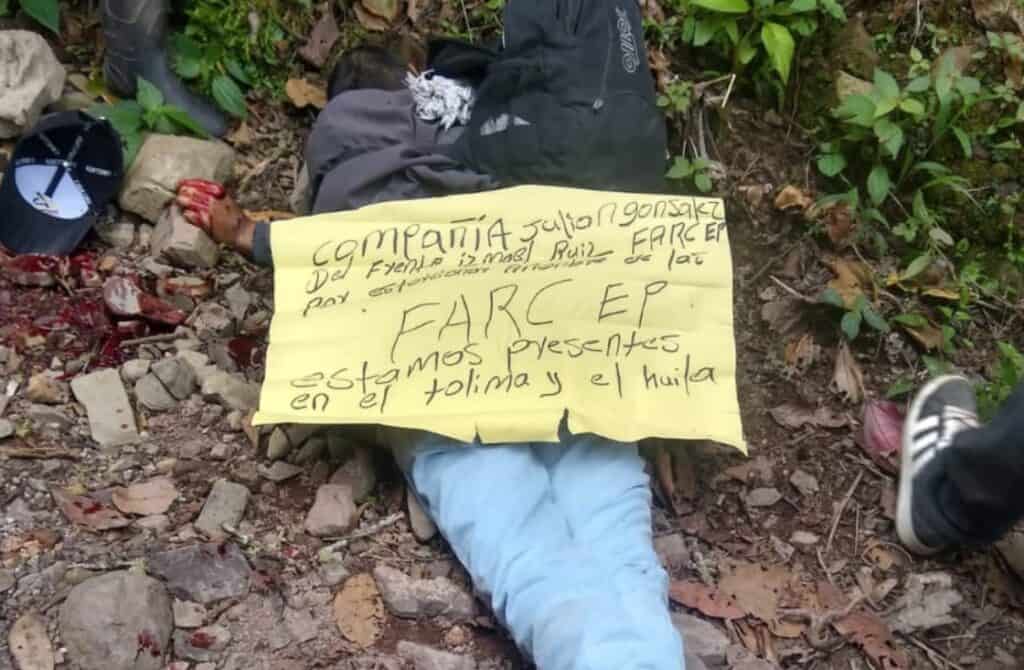 COMPAÑÍA Julian gonsalez
Del Frente ismael Ruiz FARC EP
por estorcionar de las
FARC EP
estamos presentes
en el tolima y el huila